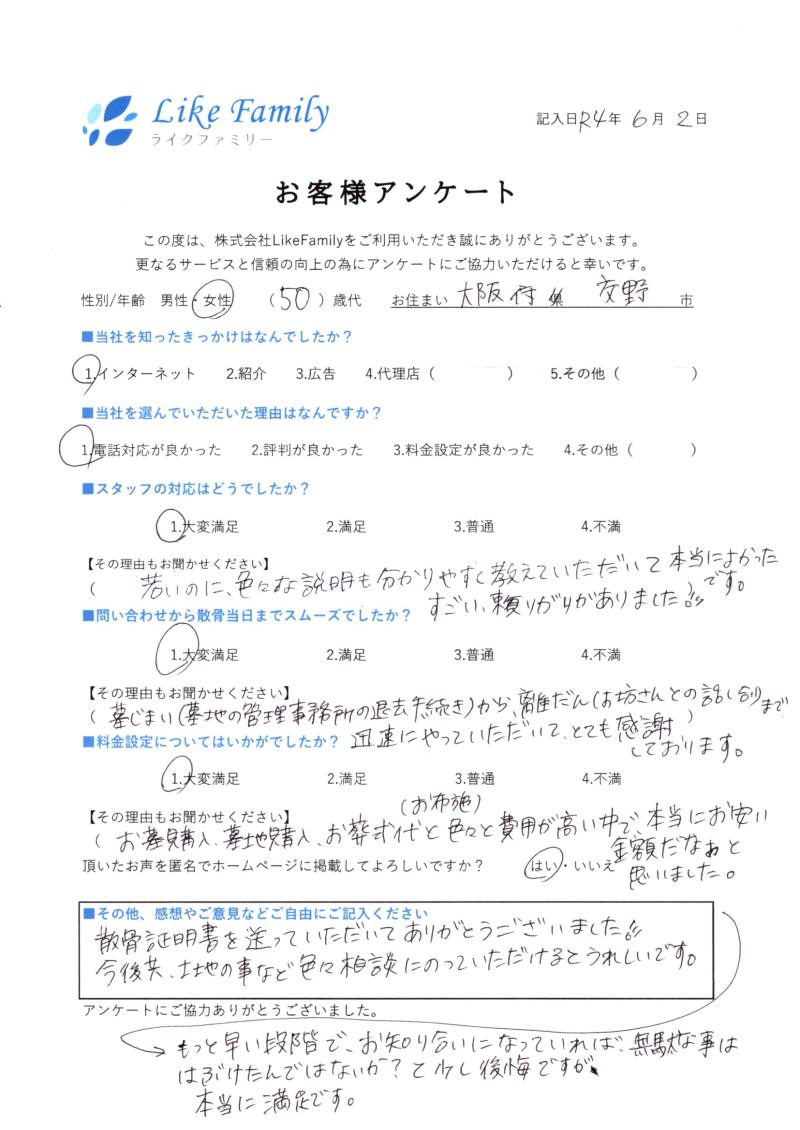 Like Family
ライクファミリー
記入日R4年 6月 2日
お客様アンケート
この度は、株式会社LikeFamilyをご利用いただき誠にありがとうございます。
更なるサービスと信頼の向上の為にアンケートにご協力いただけると幸いです。
性別/年齢 男性・女性 (50)歳代 お住まい 大阪府 県 交野 市
■当社を知ったきっかけはなんでしたか？
1.インターネット 2.紹介 3.広告 4.代理店( ) 5.その他( )
■当社を選んでいただいた理由はなんですか？
1.電話対応が良かった 2.評判が良かった 3.料金設定が良かった 4.その他( )
■スタッフの対応はどうでしたか？
1.大変満足 2.満足 3.普通 4.不満
【その理由もお聞かせください】
( 若いのに、色々な説明も分かりやすく教えていただいて本当によかった
です。
すごい、頼りがりがありました!! )
■問い合わせから散骨当日までスムーズでしたか？
1.大変満足 2.満足 3.普通 4.不満
【その理由もお聞かせください】
( 墓じまい(墓地の管理事務所の退去手続き)から、離だん(お坊さんとの話し合)りまで
迅速にやっていただいて、とても感謝 )
しております。
■料金設定についてはいかがでしたか？
1.大変満足 2.満足 3.普通 4.不満
【その理由もお聞かせください】
(お布施)
( お墓購入、墓地購入、お葬式代と色々と費用が高い中で、本当にお安い
金額だなぁと
思いました。
頂いたお声を匿名でホームページに掲載してよろしいですか？ はい・いいえ
■その他、感想やご意見などご自由にご記入ください
散骨証明書を送っていただいてありがとうございました!!
今後共、土地の事など色々相談にのっていただけるとうれしいです。
アンケートにご協力ありがとうございました。
もっと早い段階で、お知り合いになっていれば、無駄な事は
はぶけたんではないか？と少し後悔ですが、
本当に満足です。